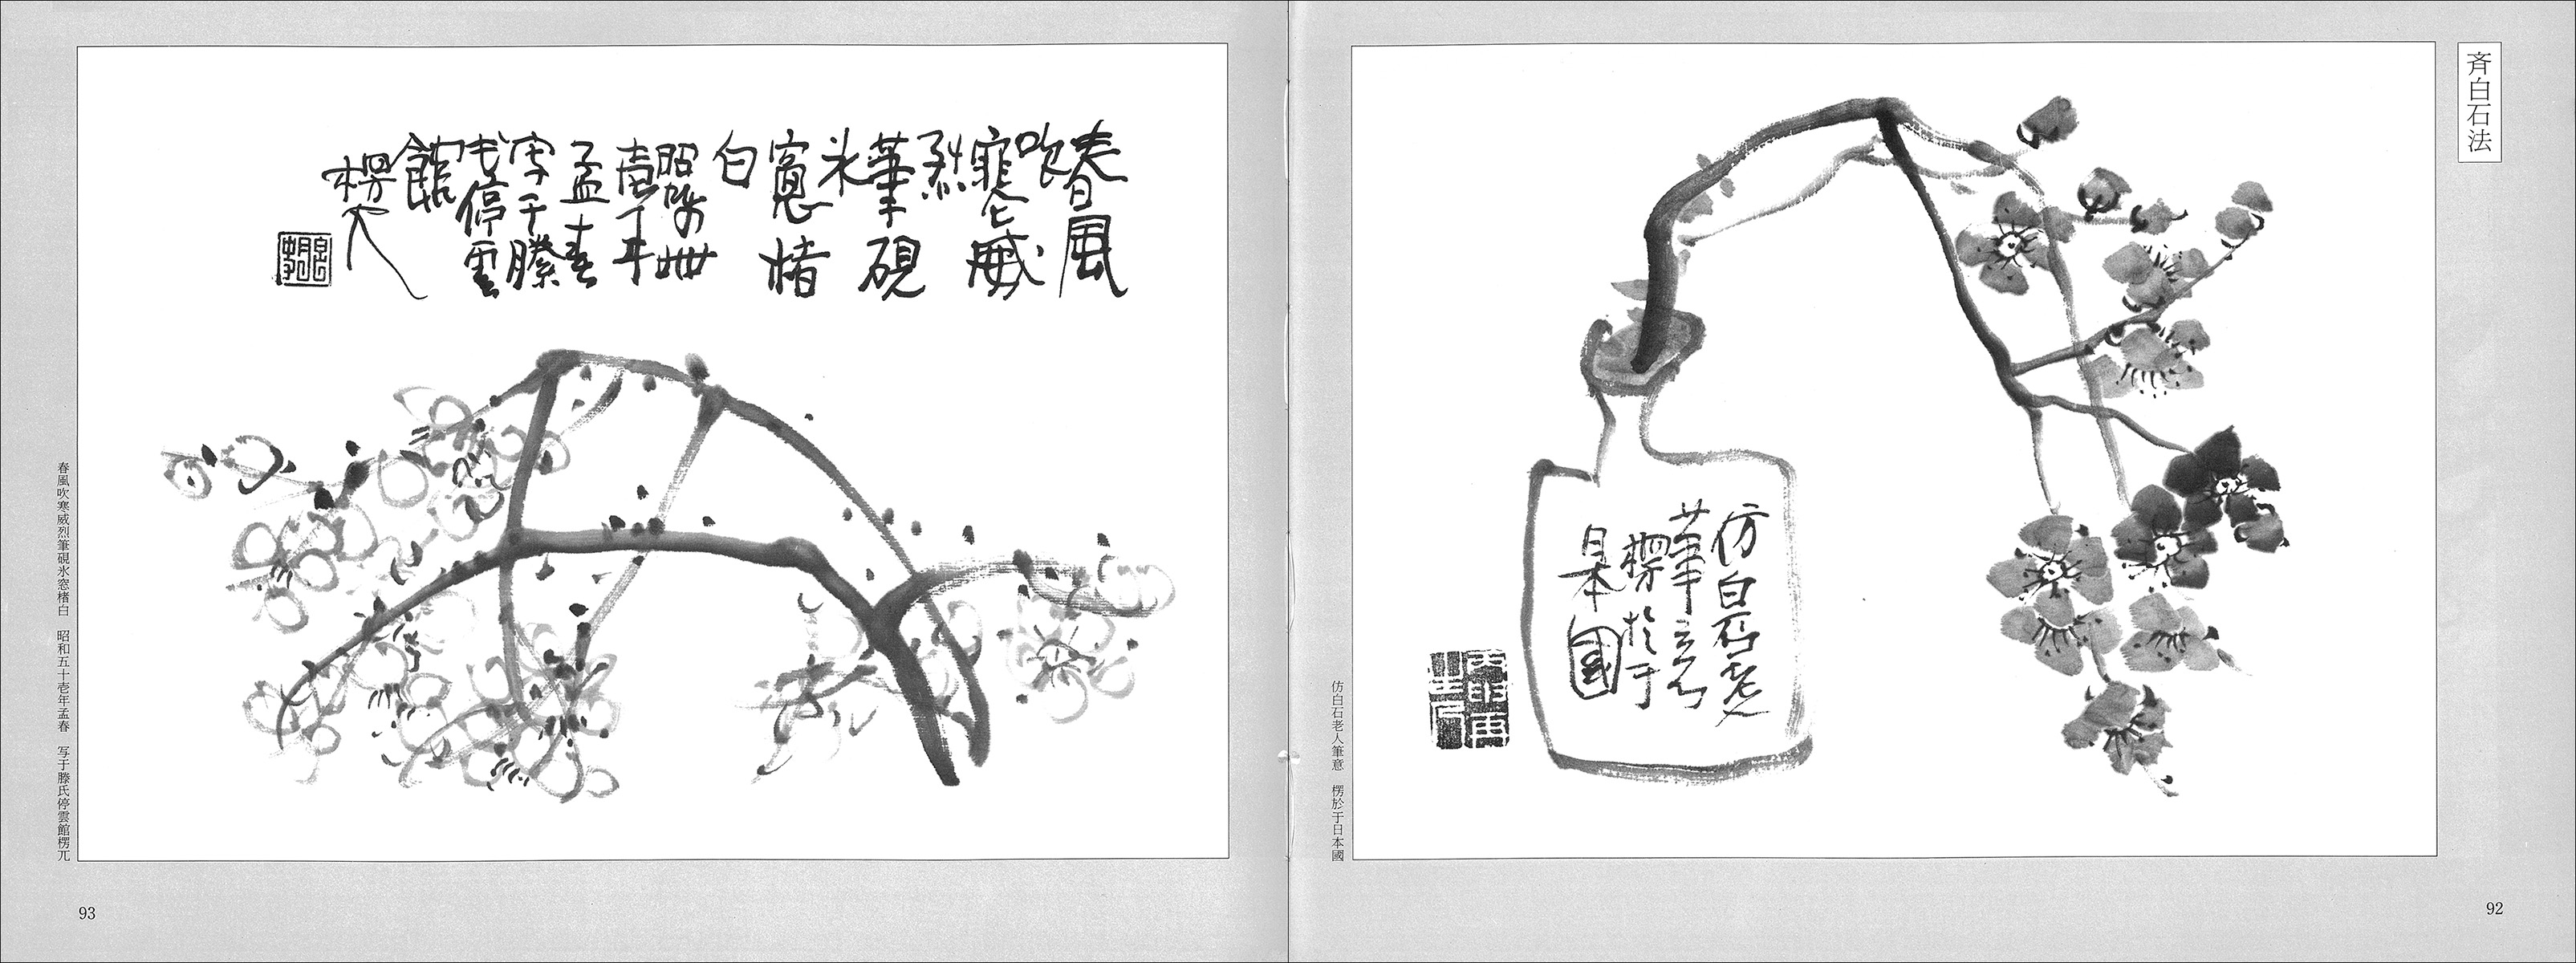 斉白石法
仿白石老
人筆意
楞於于
日本國
仿白石老人筆意　楞於于日本國
92
春風
吹
寒威
烈
筆硯
氷
窓楮
白
昭和五十
壱年
孟春
写于滕
氏停雲
館
楞
春風吹寒威烈筆硯氷窓楮白　昭和五十壱年孟春　写于滕氏停雲館楞兀
93